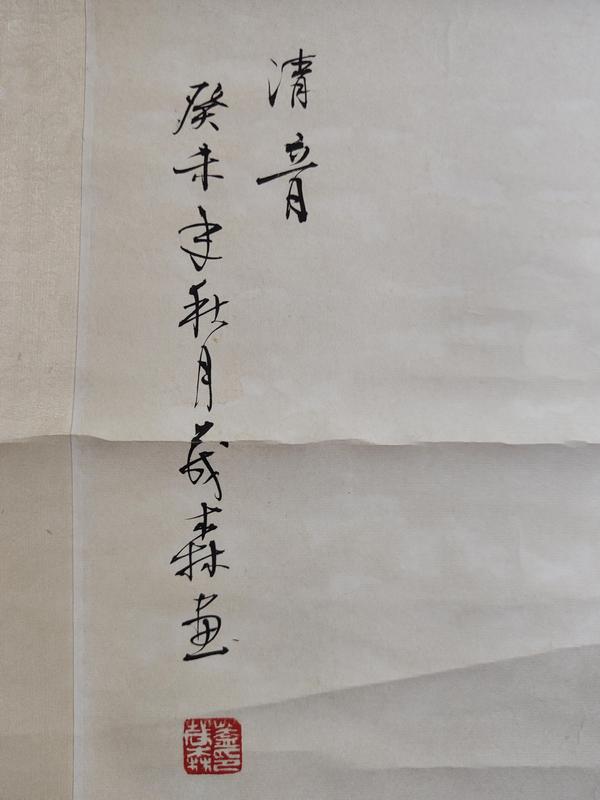 清音
癸未年秋月茂森畫